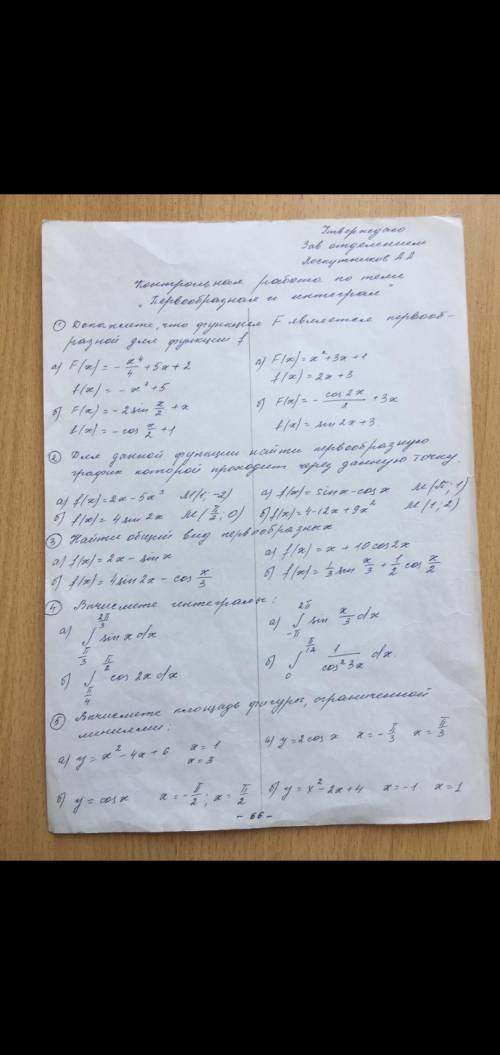 Утверждаю
Зав отделением
Лоскутников АА
Контрольная работа по теме
"Первообразная и интеграл"
① Докажите, что функция F является первооб-
разной для функции f
а) F(x) = -x⁴/4 + 5x + 2
f(x) = -x³ + 5
б) F(x) = -2sin x/2 + x
f(x) = -cos x/2 + 1
а) F(x) = x² + 3x + 1
f(x) = 2x + 3
б) F(x) = -cos 2x/2 + 3x
f(x) = sin 2x + 3
② Для данной функции найти первообразную
график которой проходит через данную точку.
а) f(x) = 2x - 5x³ M(1; -2)
б) f(x) = 4sin 2x M(π/2; 0)
а) f(x) = sinx - cosx M(π; 1)
б) f(x) = 4 - 12x + 9x² M(1; 2)
③ Найти общий вид первообразных
а) f(x) = 2x - sinx
б) f(x) = 4sin2x - cos x/3
а) f(x) = x + 10cos2x
б) f(x) = 1/3 sin x/3 + 1/2 cos x/2
④ Вычислите интегралы:
а) ∫ π/3 2π/3 sin x dx
б) ∫ π/4 π/2 cos 2x dx
а) ∫ -π 2π sin x/3 dx
б) ∫ 0 π/12 1/cos²3x dx.
⑤ Вычислите площадь фигуры, ограниченной
линиями:
а) y = x² - 4x + 6 x = 1
x = 3
б) y = cosx x = -π/2; x = π/2
а) y = 2cosx x = -π/3 x = π/3
б) y = x² - 2x + 4 x = -1 x = 1
- 66 -